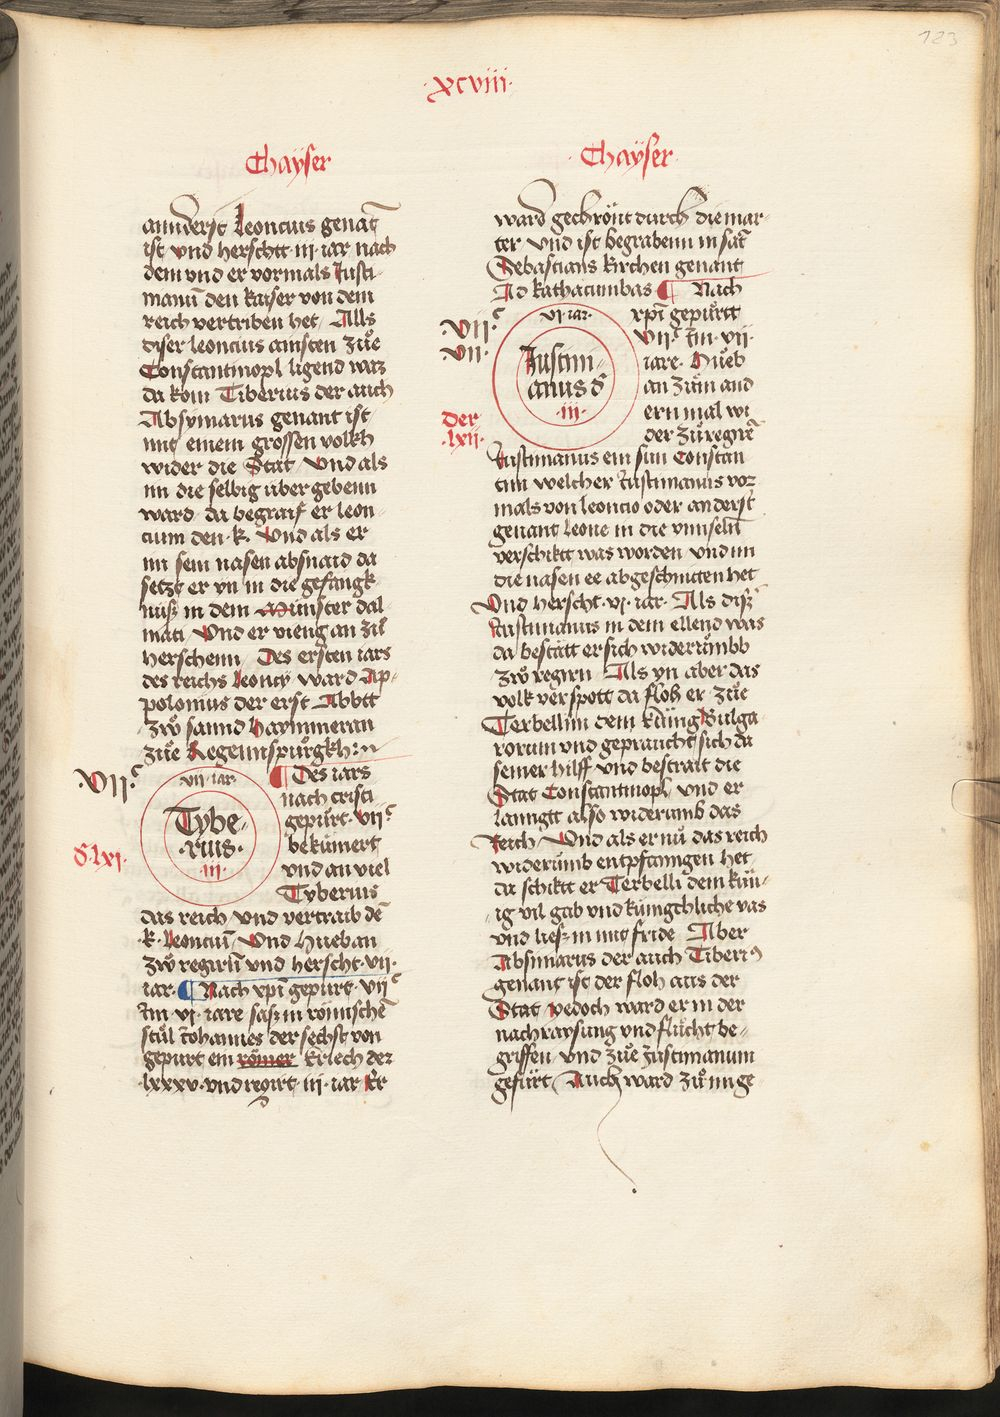 123
·xcviii·
Chaÿser
annderst Leoncius genāt
ist vnd herschtt ·iii· iar nach
dem vnd er vormals Justi-
manū den kaiser von dem
reich vertriben het / Alls
diser leoncius ainsten zůe
Constantinopl ligend waz
da kom Tiberius der auch
Absymarus genant ist
mit einem grossen volkh
wider die Stat / Vnd als
im die selbig übergebenn
ward da begraif er leon-
cium den ·k· Vnd als er
im sein nasen absnaid da
setzt er yn in die gefangk
nüß in dem Münster dal
mati Vnd er vieng an zů
herschenn / Des ersten iars
des reichs Leoncy ward Ap-
polonius der erst Abbtt
zw sannd haymmeran
zůe Regennspurgkh:
·VII·c
vii· iar·
Tybe-
·rius·
·iii·
d·lxi·
¶ Des iars
nach cristi
gepurt ·vii·c
bekümert
vnd an viel
Tyberius
das reich vnd vertraib dē
·k· Leonciū Vnd hueb an
zw regirn̄ vnd herscht ·vii·
iar· ¶ Nach xpī gepurt ·vii·c
Im ·vi· iare saß in römischē
stůl Johannes der sechst von
gepurt ein römer kriech der
lxxxv· vnd regirt ·iii· iar Er
Chaÿser
ward gechrönt durch die mar-
ter vnd ist begrabenn in sāt
Sebastians kirchen genant
Ad kathacumbas ¶ Nach
·VII·c
·VII·
vi· iar·
Justini-
anus d
·iii·
der
·lxii·
xpī gepürtt
vii·c Im ·vii·
iare· Hueb
an zům and
ern mal wi
der zů regirē
Justinianus ein sun Constan
tini welcher Justinianus vor
mals von leoncio oder anderst
genant Leone in die vnnseln̄
verschikt was worden vnd im
die nasen ee abgeschnitten het
Vnd herscht ·vi· iar· Als diser
Justinianus in dem ellend was
da bestätt er sich widerůmbb
zw regirn Als yn aber das
volk verspott da floh er zůe
Terbellim dem küng Bulga
rorum vnd gepraucht sich da
seiner hilff vnd bestrait die
Stat Constantinopl vnd er
lanngtt also widerumb das
Reich Vnd als er nů das reich
widerümb entpfanngen het
da schikt er Terbelli dem kün-
ig vil gab vnd künigchliche vas
vnd ließ in mit fride Aber
Absimarus der auch Tiberius
genant ist der floh aus der
Stat yedoch ward er in der
nachraysung vnd flücht be-
griffen vnd zůe Justinianum
gefürt / Auch ward zů im ge